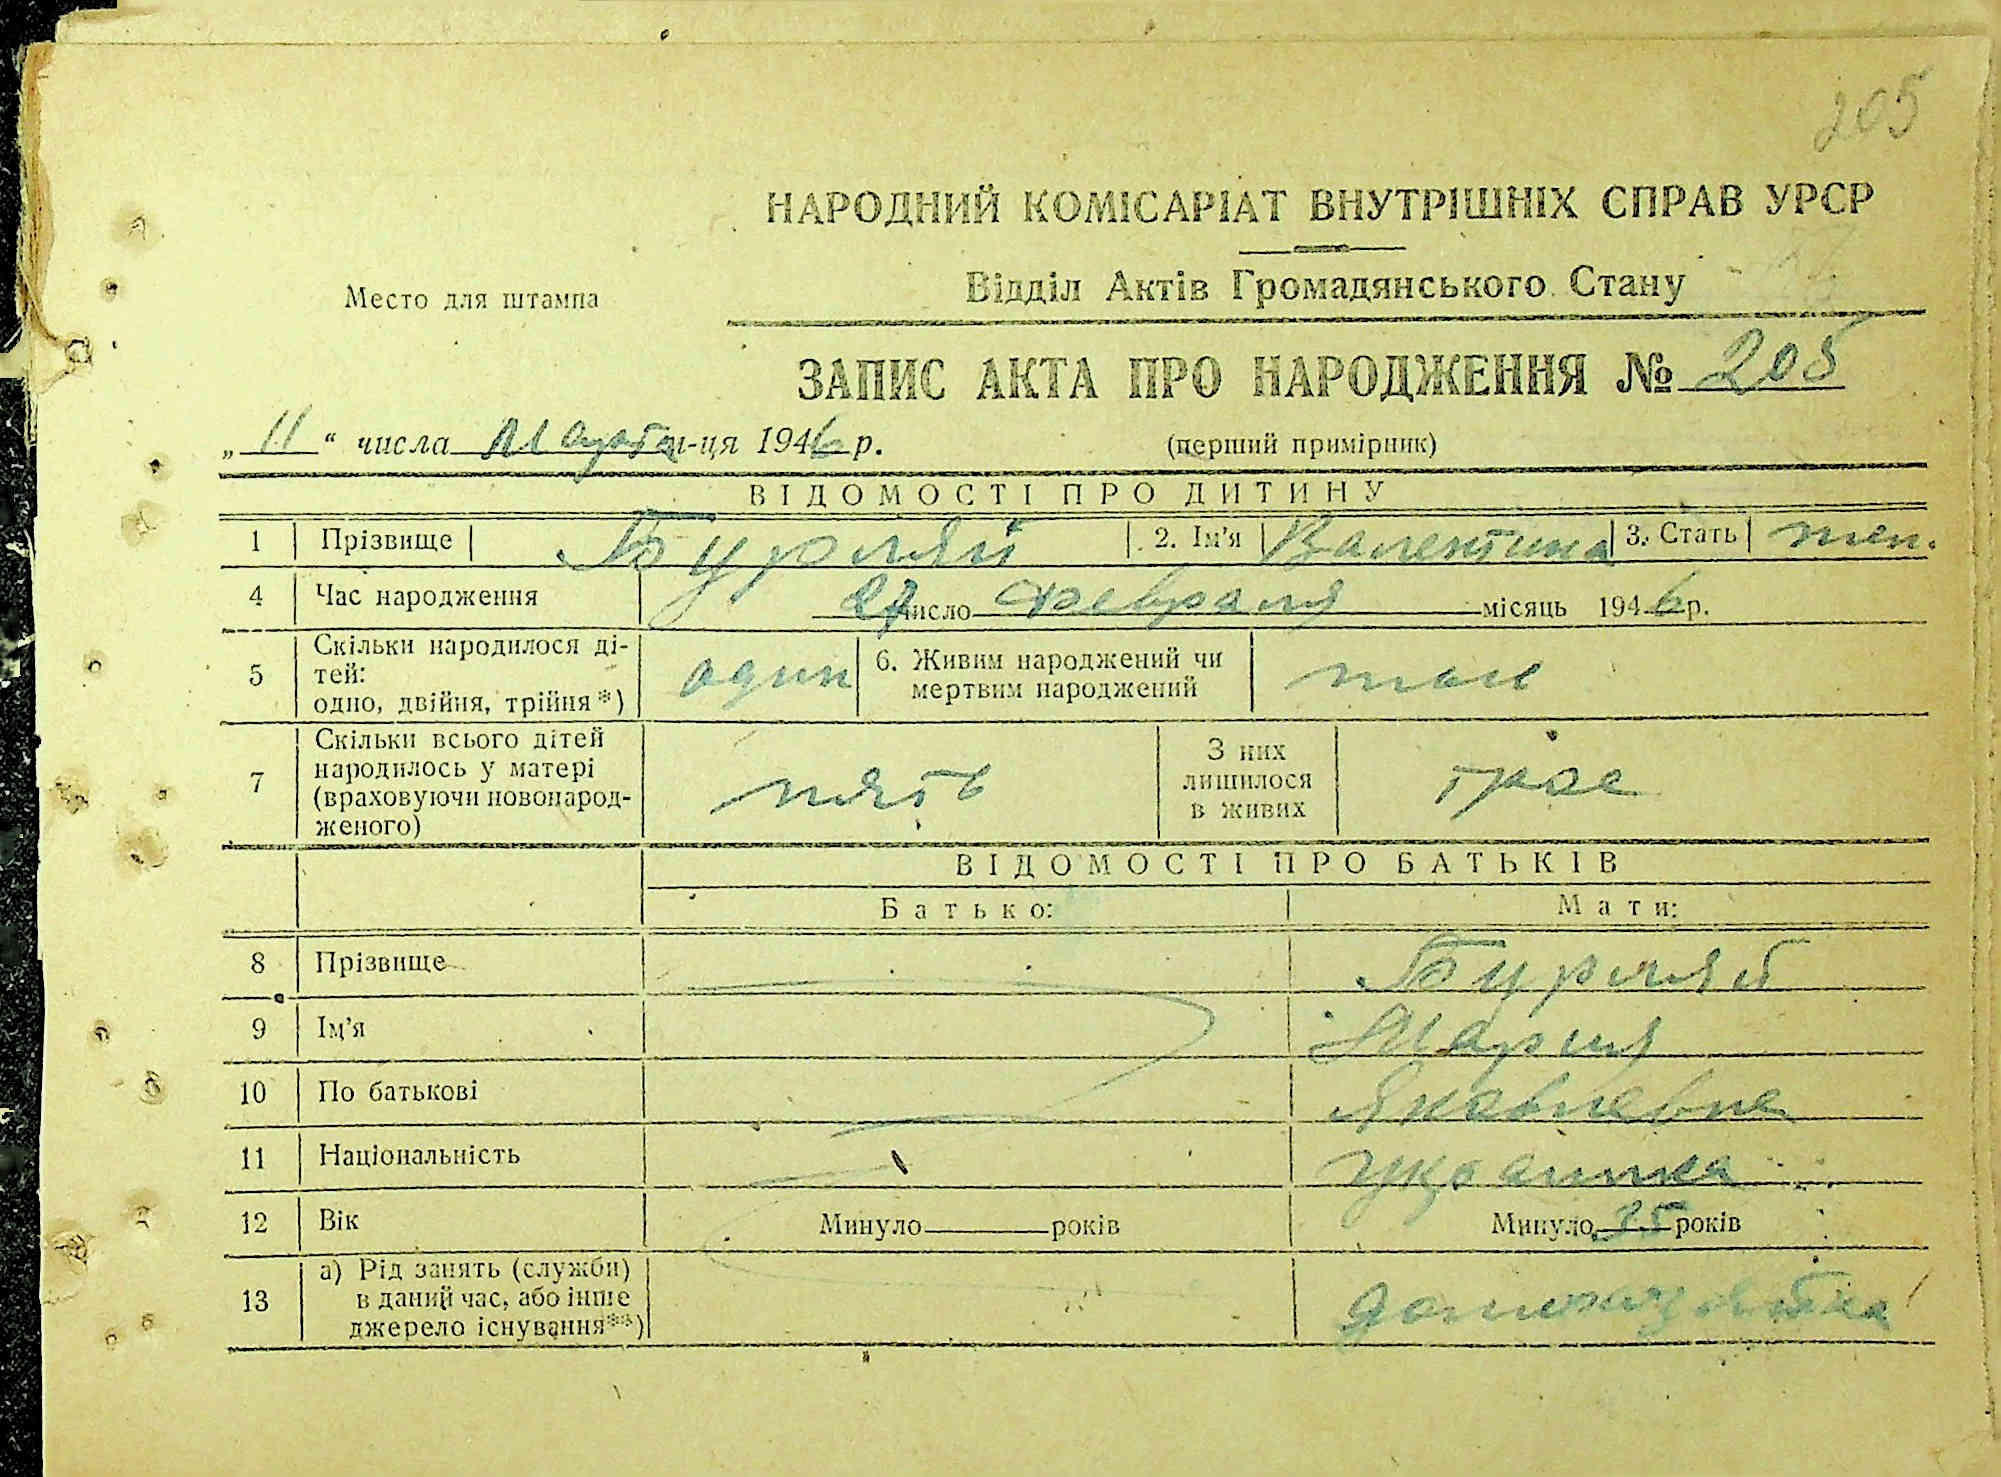 205
НАРОДНИЙ КОМІСАРІАТ ВНУТРІШНІХ СПРАВ УРСР
Место для штампа
Відділ Актів Громадянського Стану
ЗАПИС АКТА ПРО НАРОДЖЕННЯ № 205
„ 11 “ числа Марта м-ця 1946 р. (перший примірник)
ВІДОМОСТІ ПРО ДИТИНУ
1 Прізвище Бурляй 2. Ім'я Валентина 3. Стать жен.
4 Час народження 27 число Февраля місяць 1946 р.
5 Скільки народилося ді-
тей:
одно, двійня, трійня*) один 6. Живим народжений чи
мертвим народжений
7 Скільки всього дітей
народилось у матері
(враховуючи новонарод-
женого) пять З них
лишилося
в живих трое
ВІДОМОСТІ ПРО БАТЬКІВ
Батько: Мати:
8 Прізвище Бурляй
9 Ім'я Мария
10 По батькові Яковлевна
11 Національність украинка
12 Вік Минуло років Минуло 35 років
13 а) Рід занять (служби)
в даний час, або інше
джерело існування**) домохазяйка